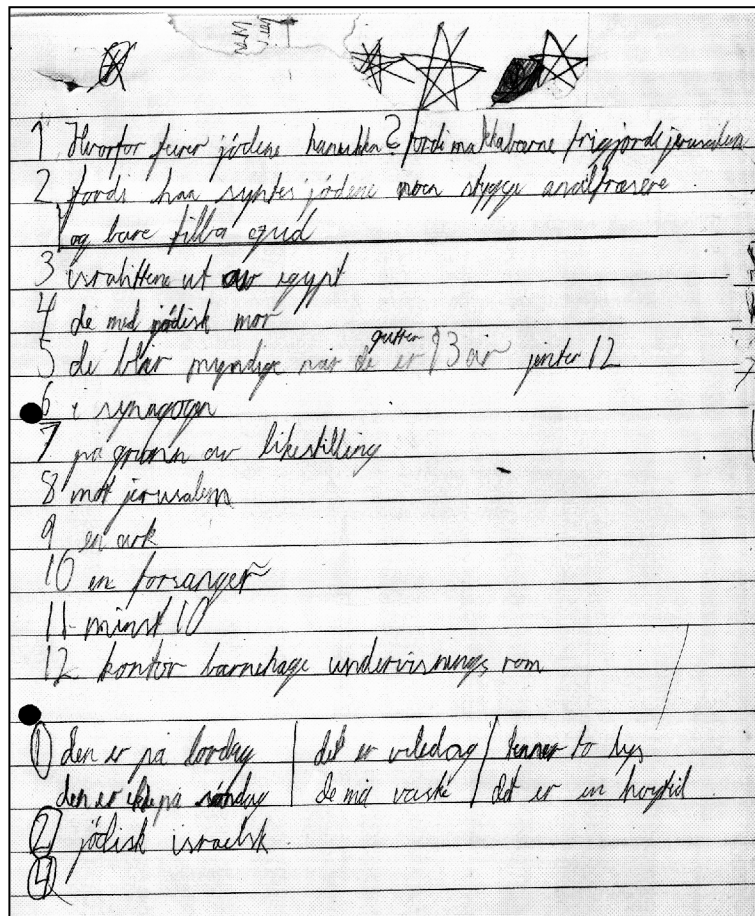 1 Hvorfor feirer jødene hanukka? fordi makkabærne frigjorde jerusalem
2 fordi han syntes jødene noen stygge analfabsere
og bare tilba gud
3 isralittene ut av egypt
4 de med jødisk mor
5 de blir myndige når de gutter er 13 år jenter 12
6 i synagogen
7 på grunn av likestilling
8 mot jerusalem
9 en ark
10 en forsanger
11 minst 10
12 kontor barnehage undervisnings rom
1 den er på lørdag | det er viledag | tenner to lys
den er ikke på søndag | de må vaske | det er en høytid
2 jødisk israelsk
4